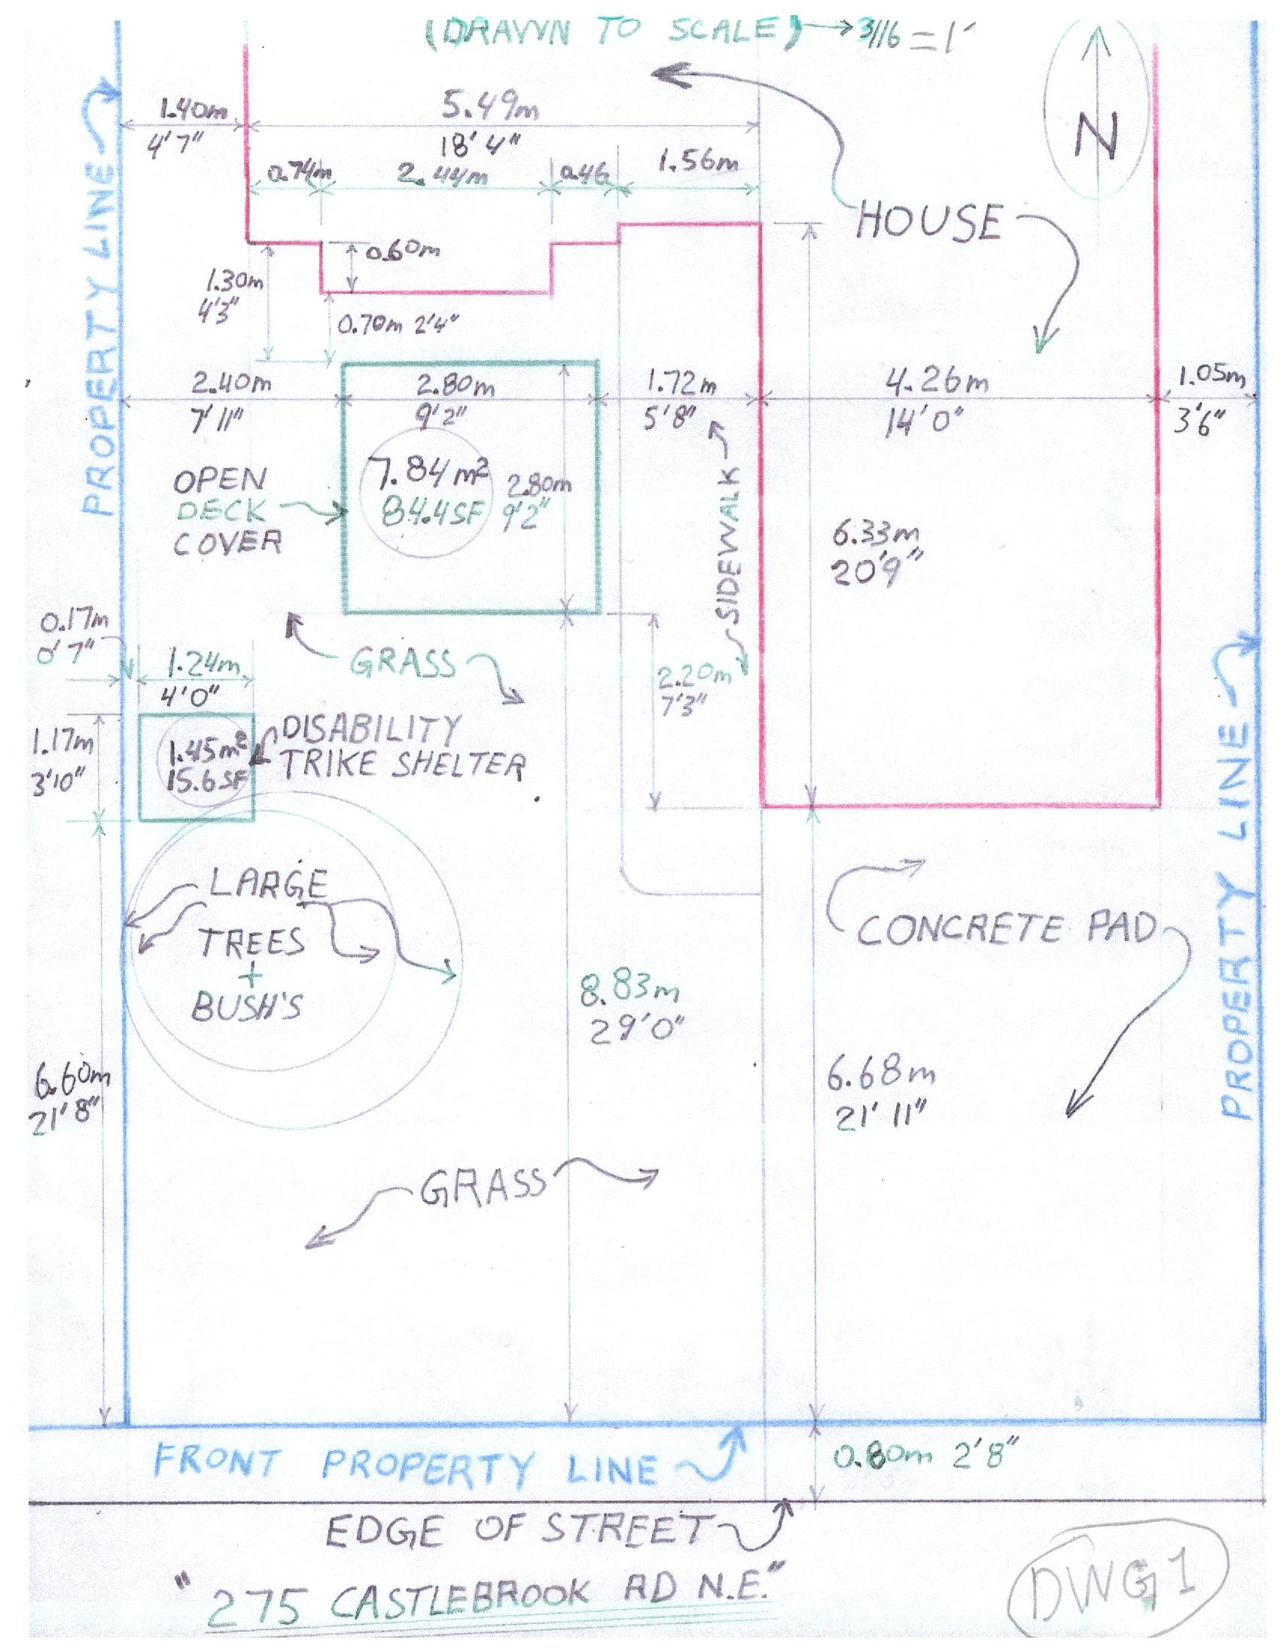 (DRAWN TO SCALE) → 3/16 = 1'
N
1.40m
4'7"
5.49m
18'4"
0.74m
2.44m
0.46
1.56m
HOUSE
PROPERTY LINE
0.60m
1.30m
4'3"
0.70m 2'4"
2.40m
7'11"
2.80m
9'2"
1.72m
5'8"
4.26m
14'0"
1.05m
3'6"
OPEN
DECK
COVER
7.84m²
84.4SF
2.80m
9'2"
SIDEWALK
6.33m
20'9"
0.17m
0'7"
GRASS
1.24m
4'0"
2.20m
7'3"
1.17m
3'10"
1.45m²
15.6SF
DISABILITY
TRIKE SHELTER
PROPERTY LINE
LARGE
TREES
+
BUSH'S
CONCRETE PAD
8.83m
29'0"
6.60m
21'8"
6.68m
21'11"
GRASS
FRONT PROPERTY LINE
0.80m 2'8"
EDGE OF STREET
"275 CASTLEBROOK RD N.E."
DWG 1